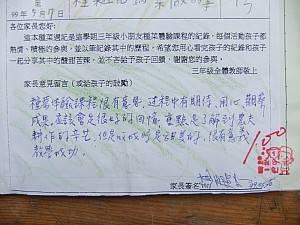 99年5月7日
各位家長您好：
這本種菜週記是這學期三年級小朋友種菜體驗課程的紀錄，每個活動孩子都
熱情、積極的參與，並以筆記錄其中的歷程，希望您用心看完孩子的紀錄和孩子
一起分享其中的酸甜苦辣，並不吝給予孩子回饋，謝謝您的參與。
三年級全體教師敬上
家長意見留言（或給孩子的鼓勵）
種菜体驗課程很有意義，过程中有期待，用心，觀察
成果，應該會是很好的回憶，重點是了解到農夫
耕作的辛苦，但是收成時是甜美的，很有意義
教學成功。
100
家長簽名